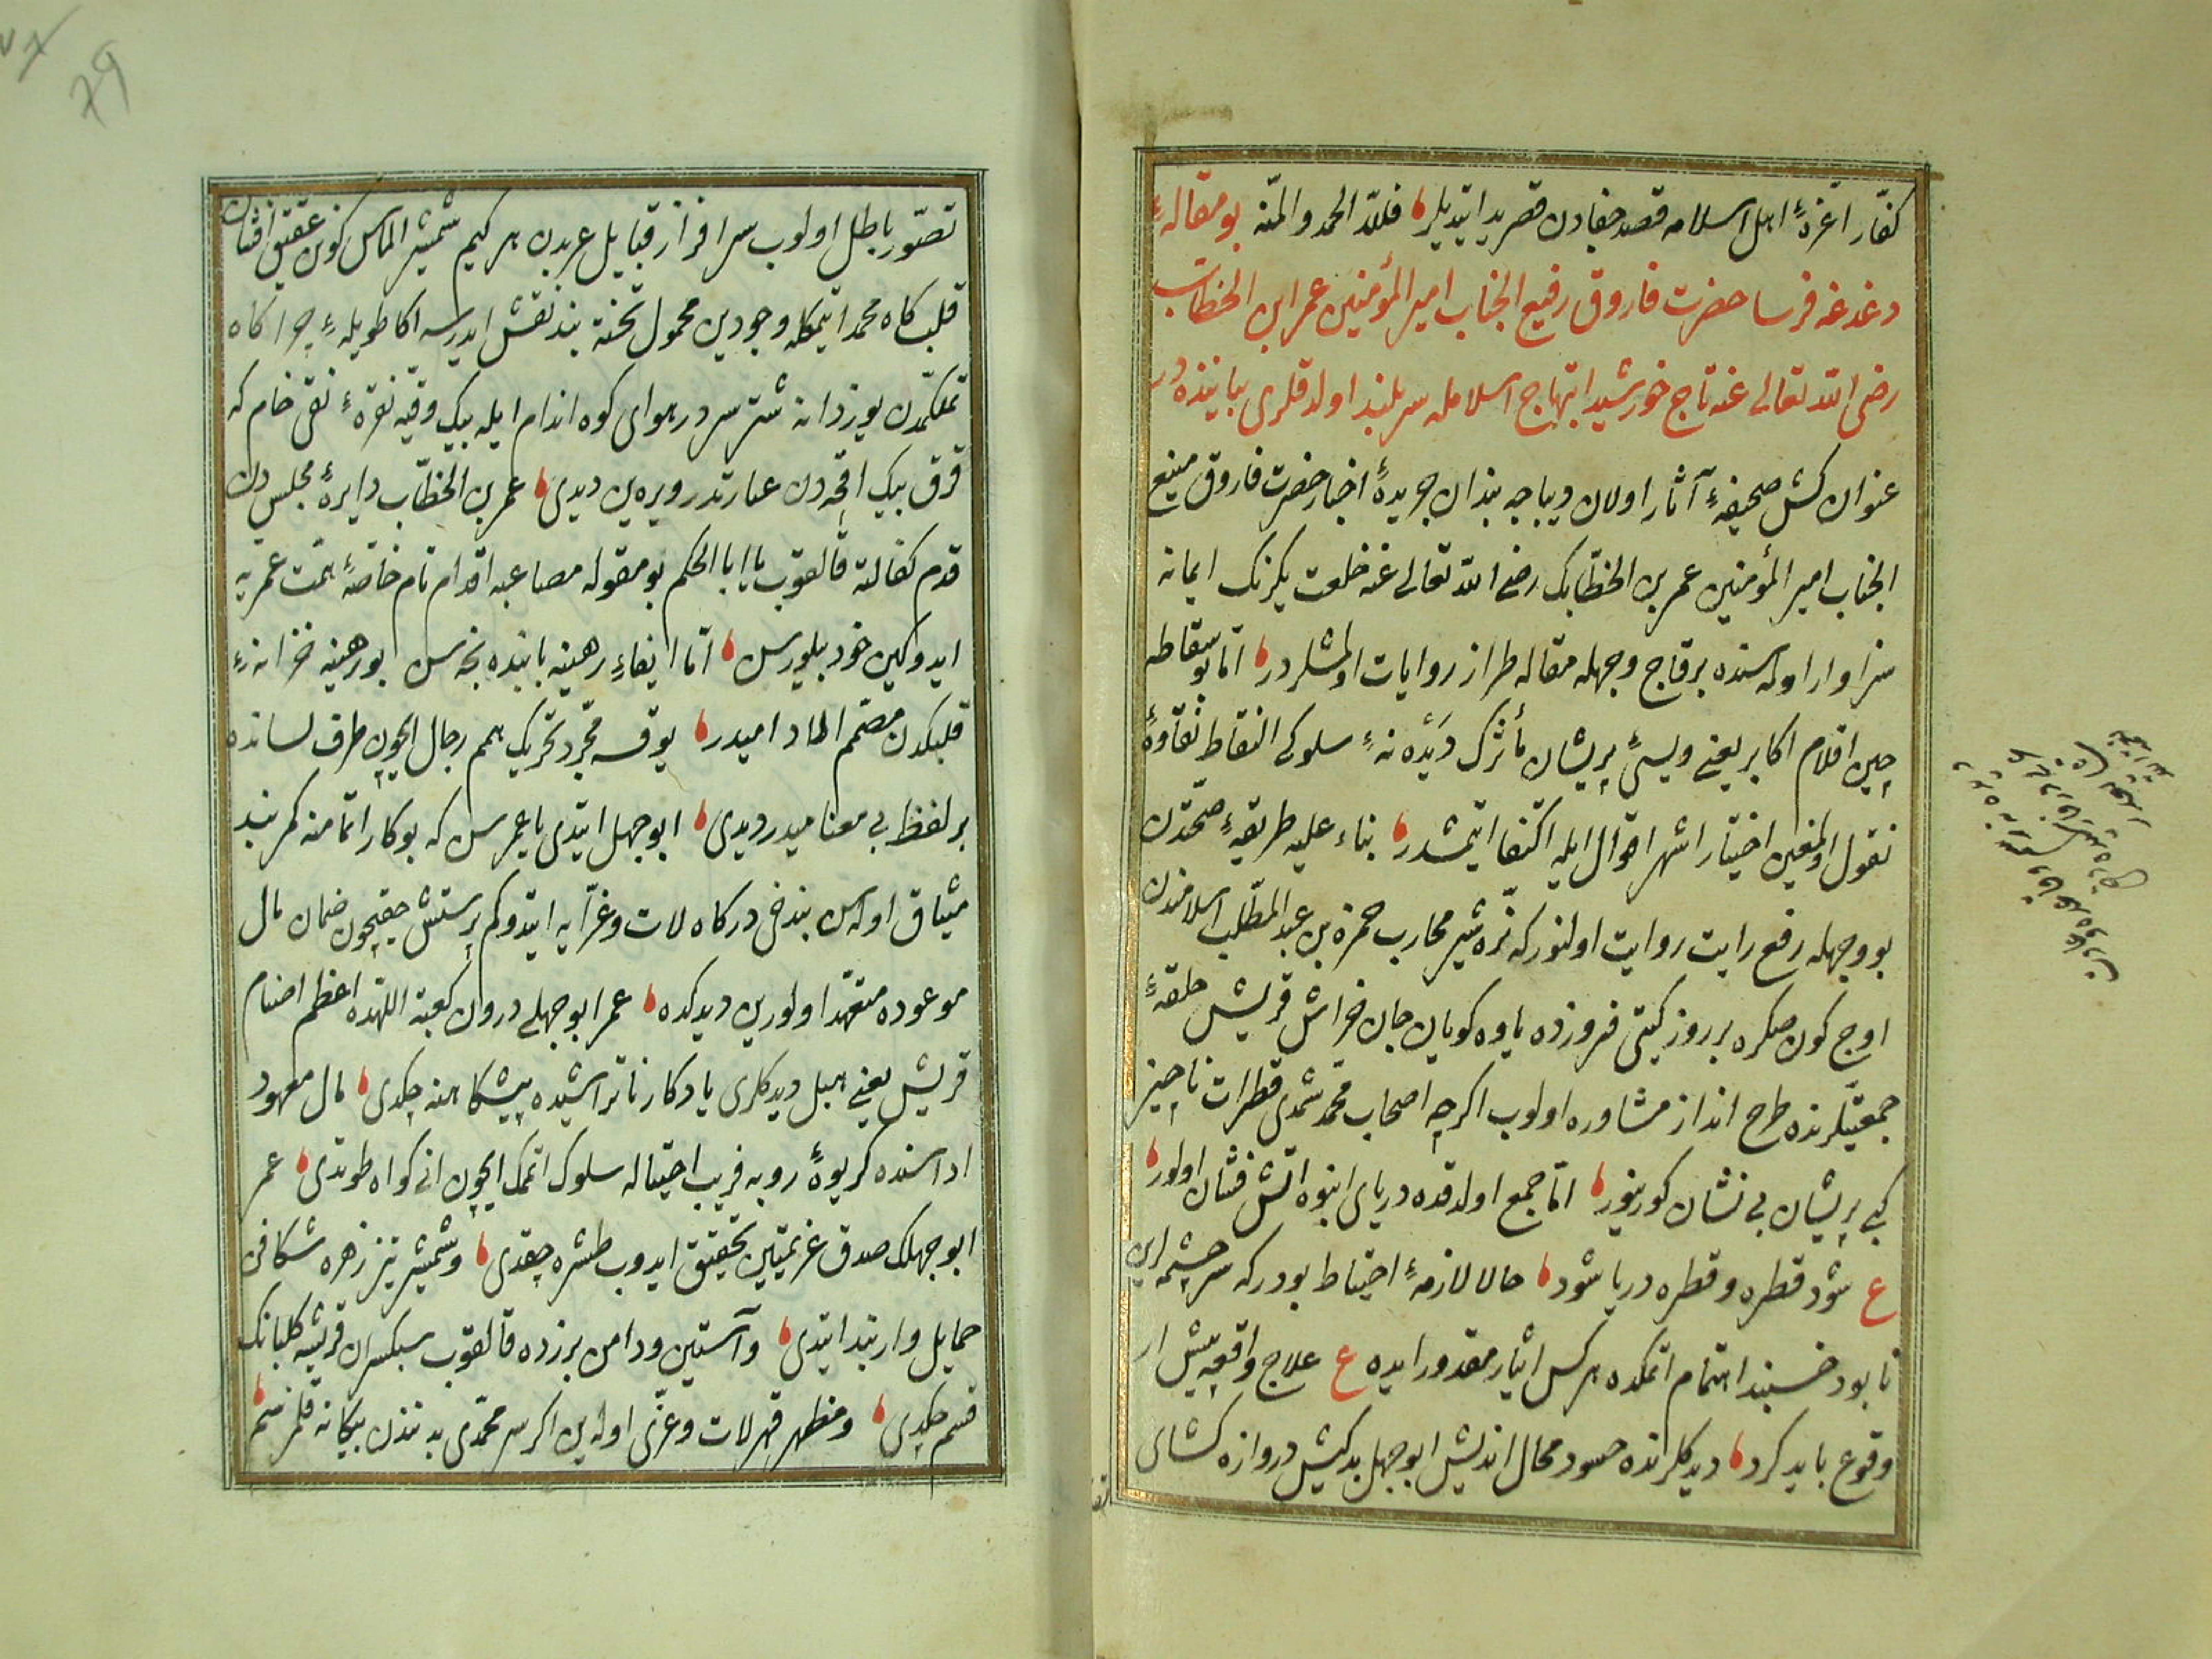 كفّار اعزهٔ اهل اسلامه قصد جفادن قصر يد ايتديلر فللّه الحمد والمنّه بو مقالهٔ
دغدغه فرسا حضرت فاروق رفيع الجناب امير المؤمنين عمر ابن الخطاب
رضى اللّه تعالى عنه تاج خورشيد ابتهاج اسلامله سربلند اولدقلرى بياننده در
عنوان كش صحيفهٔ آثار اولان ديباجه بندان جريدهٔ اخبار حضرت فاروق منيع
الجناب امير المؤمنين عمر بن الخطّابك رضى اللّه تعالى عنه خلعت يكرنك ايمانه
سزاوار اولمسنده برقاج وجهله مقاله طراز روايات اولمشلردر امّا بو سقاطه
چين اقلام اكابر يعنى ويسئ پريشان مأثرك ديده نهٔ سلوكى التقاط نقاوهٔ
نقول اولمغين اختيار اشهر اقوال ايله اكتفا ايتمشدر بناء عليه طريقهٔ صحّتدن
بو وجهله رفع رايت روايت اولنور كه نرّه شير محارب حمزه بن عبد المطّلب اسلامندن
اوج كون صكره بر روز كيتى فروزده ياوه كويان جان خراش قريش حلقهٔ
جمعيّتلرنده طرح انداز مشاوره اولوب اكرچه اصحاب محمّد شمدى قطرات ناچيز
كبى پريشان بى نشان كورينور امّا جمع اولدقده درياى انبوه اتش فشان اولور
ع شود قطره و قطره دريا شود حالا لازمهٔ احتياط بودر كه سرچشمه ءاين
نابود خسبند اهتمام اتمكده هركس ايثار مقدور ايده ع علاج واقعه پيش از
وقوع بايد كرد ديدكلرنده حسود محال انديش ابو جهل بدكيش دروازه كشاى
تصوّر باطل اولوب سرافراز قبايل عربدن هركيم شمشير الماس كون عقيق افشان
قلب كاه محمد ايتمكله وجودين محمول تخته بند نقش ايدرسه اكا طويلهٔ چراكاه
تملّكمدن يوز دانه شتر سر در هواى كوه اندام ايله بيك وقيه نقرهٔ نقى خام كه
قرق بيك اقچه دن عبارتدر ويره ين ديدى عمر بن الخطّاب دايرهٔ مجلسدن
قدم كفالته قالقوب يا ابا الحكم بو مقوله مصاعبه اقدام تام خاصّهٔ همّت عمريه
ايدوكين خود بلورسن امّا ايفاء رهينه بابنده نجه سن بو رهينه خزانهٔ
قلبكدن مصمّم الماد اميدر يوقسه مجرّد تحريك همم رجال ايچون طرف لسانده
بر لفظ بى معناميدر ديدى ابو جهل ايتدى يا عمر سن كه بو كار اتمامنه كمر بند
ميثاق اولهسن بن دخى دركاه لات وعزّايه ايتدوكم پرستش حقيچون ضمان مال
موعوده متعهّد اولورين ديدكده عمر ابو جهلى درون كعبة اللهده اعظم اصنام
قريش يعنى هبل ديدكلرى يادكار ناتراشيده پيشكاهنه چكدى مال معهود
اداسنده كريوهٔ روبه فريب احتياله سلوك اتمك ايچون انى كواه طوتدى عمر
ابو جهلك صدق عزيمتين تحقيق ايدوب طشره چقدى و شمشير تيز زهره شكافى
حمايل وار بند ايتدى و آستين و دامن برزده قالقوب سبكسران قريشه كلبانك
قسم چكدى و مظهر قهر لات و عزّى اوله ين اكر سر محمّدى بدنندن بيكانه قلمزسم